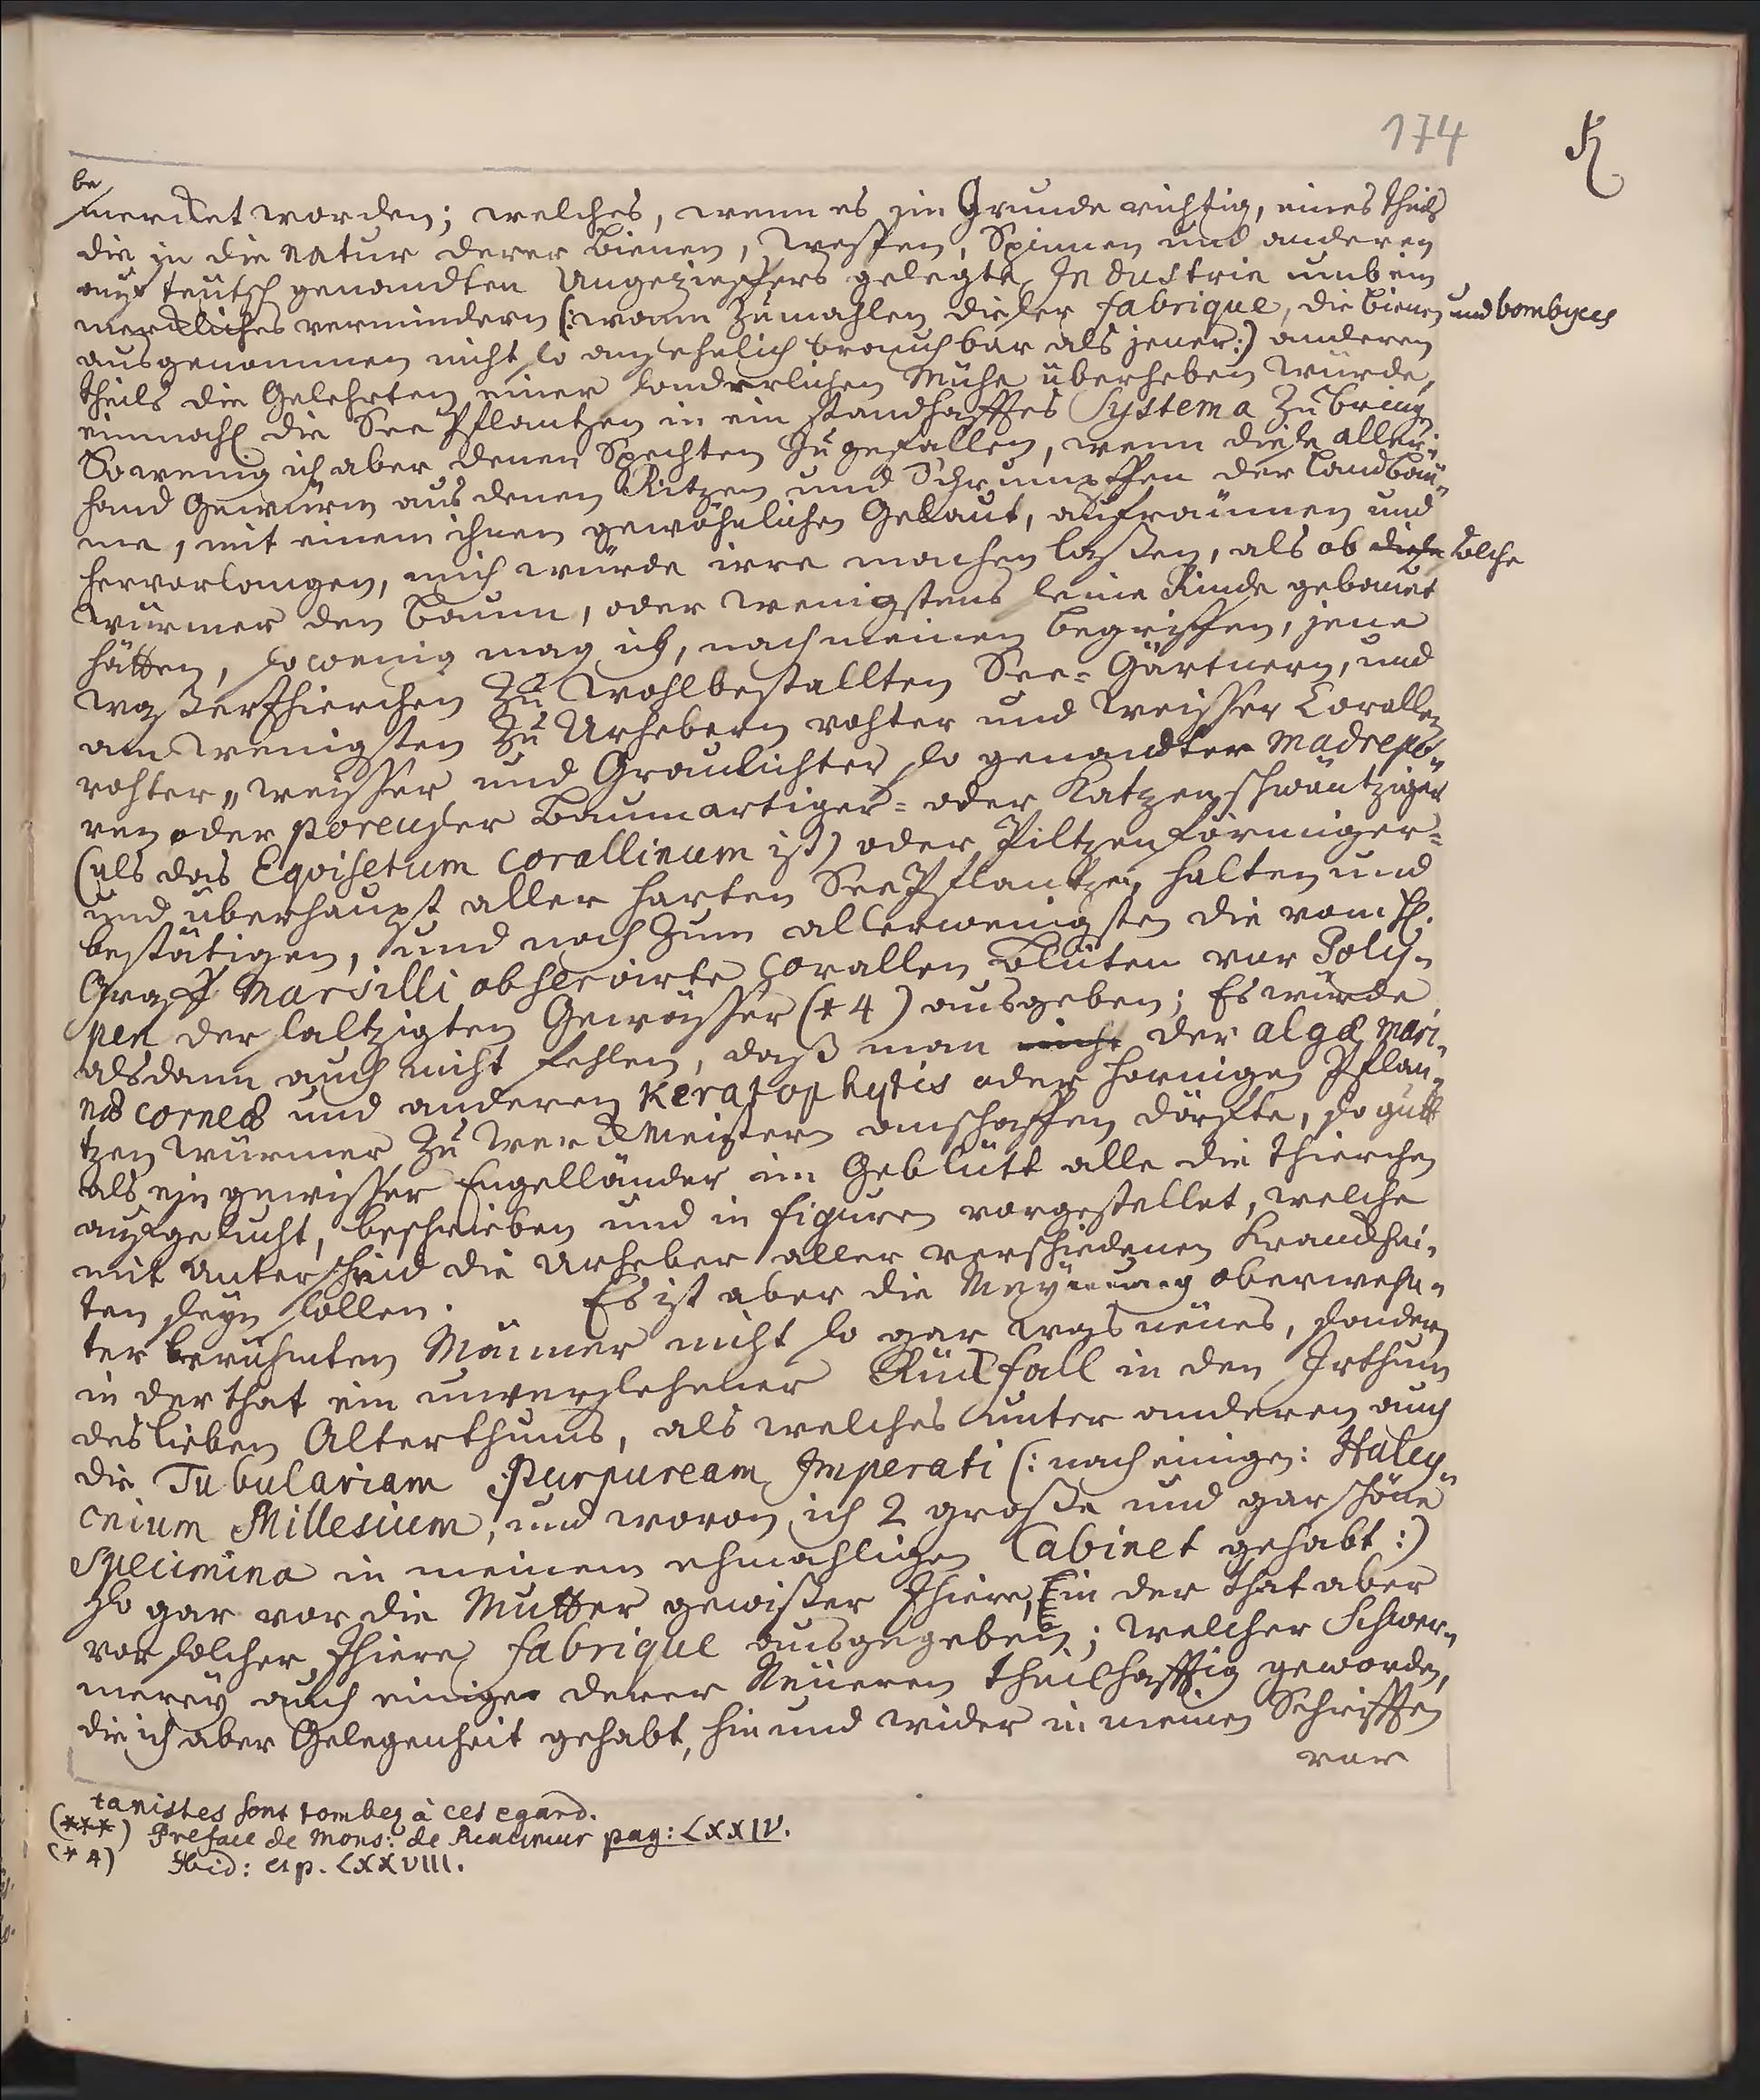 174
K
be
mercket worden; welches, wenn es im Grunde richtig, eines theils
die in die Natur derer Bienen, Wespen, Spinnen und anderen
auf teutsch genandten Ungezieffers gelegte Industrie umb ein
merckliches vermindern (: wann zumahlen dieser fabrique, die Bienen und bombyces
ausgenommen nicht so ansehnlich brauchbar als jener:) anderen
theils die Gelehrten einer sonderlichen Mühe überheben würde,
einmahl die See Pflantzen in ein standhafftes Systema zu bring
So wenig ich aber denen Spechten zu gefallen, wenn diese aller-
hand Gewürm aus denen Ritzen und Schrumpffen der Landbäu-
me, mit einem ihnen gewöhnlichen Gelaut, aufräumen und
hervorlangen, mich würde irre machen laßen, als ob diese solche
Würmer den Baum, oder wenigstens seine Rinde gebauet
hätten, so wenig mag ich, nach meinen Begriffen, jene
Waßerthierchen zu wohlbestallten See-Gärtnern, und
am wenigsten zu Urhebern rohter und weisser Corallen
rohter,, weisser und Graulichter so genandter Madrepo-
ren oder poreuser Baumartiger- oder Katzenschwäntziger
(als das Eqvisetum corallinum ist) oder Piltzenförmiger-
und überhaupt aller harten See Pflantzen halten und
bestätigen, und noch zum allerwenigsten die vom H.
Graff Marsilli observirte Corallen Blüten vor Poly-
pen der saltzigten Gewässer (*4) ausgeben; Es würde
alsdann auch nicht fehlen, daß man nicht der algæ mari-
næ corneæ und anderen Keratophytis oder hornigen Pflan-
tzen Würmer zu Werckmeistern anschaffen dörffte, so gutt
als ein gewisser Engelländer im Geblütt alle die Thierchen
aufgesucht, beschrieben und in figuren vorgestellet, welche
mit Unterscheid die Urheber aller verschiedenen Kranckhei-
ten seyn sollen. Es ist aber die Meynung oberwehn-
ter berühmten Männer nicht so gar was neues, sondern
in der that ein unversehener Rückfall in den Irthum
des lieben Alterthums, als welches unter anderen auch
die Tubulariam purpuream Imperati (: nach einigen: Halcy-
onium Millesium, und wovon ich 2 große und gar schöne
Specimina in meinem ehmahligen Cabinet gehabt :)
so gar vor die Mutter gewißer Thiere, in der that aber
vor solcher Thiere fabrique ausgegeben; welcher Schwer-
merey auch einige derer Neueren theilhafftig geworden,
die ich aber Gelegenheit gehabt, hin und wider in meinen Schrifften
vor
tanistes sont tombez à cet egard.
(***) Preface de Mons: de Reaumur pag: LXXIV.
(*4) Ibid: et p. LXXVIII.